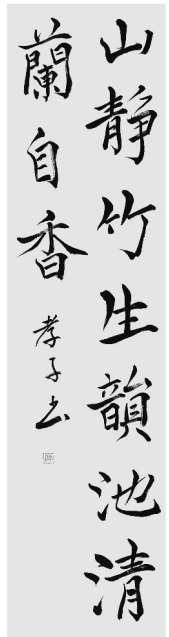 山靜竹生韻池清
蘭自香
孝子书